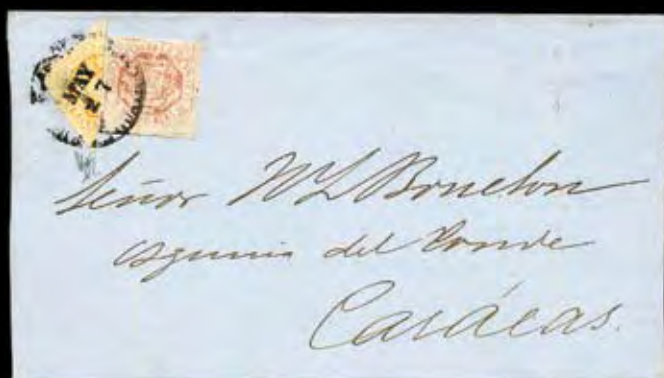 MAY
27
Señor M L Bruelon
esquina del Conde
Carácas.